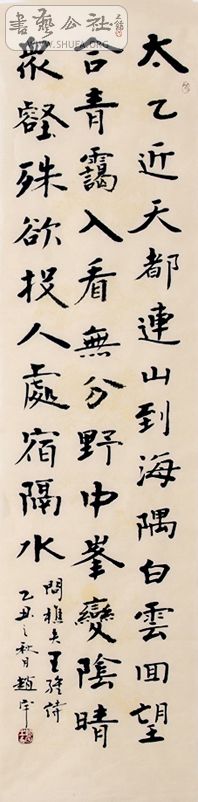 書藝公社
WWW.SHUFA.ORG
太乙近天都連山到海隅白雲回望
合青靄入看無分野中峯變陰晴
衆壑殊欲投人處宿隔水
問樵夫王維詩
乙丑之秋月趙宇